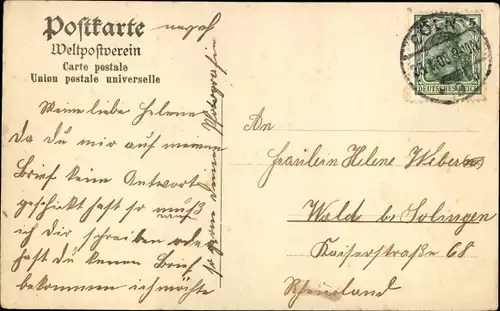 Postkarte
Weltpostverein
Carte postale
Union postale universelle
Meine liebe Helene
Da du mir auf meinen
Brief keine Antwort
geschikt hast so muß
ich dir schreiben ode
hast du kenen Brief
bekommen ich möchte
so gern deinen Photografie
CÖLN
5
DEUTSCHES REICH
An
Fräulein Helene Weber
Wald b. Solingen
Kaiserstraße 68
Rheinland